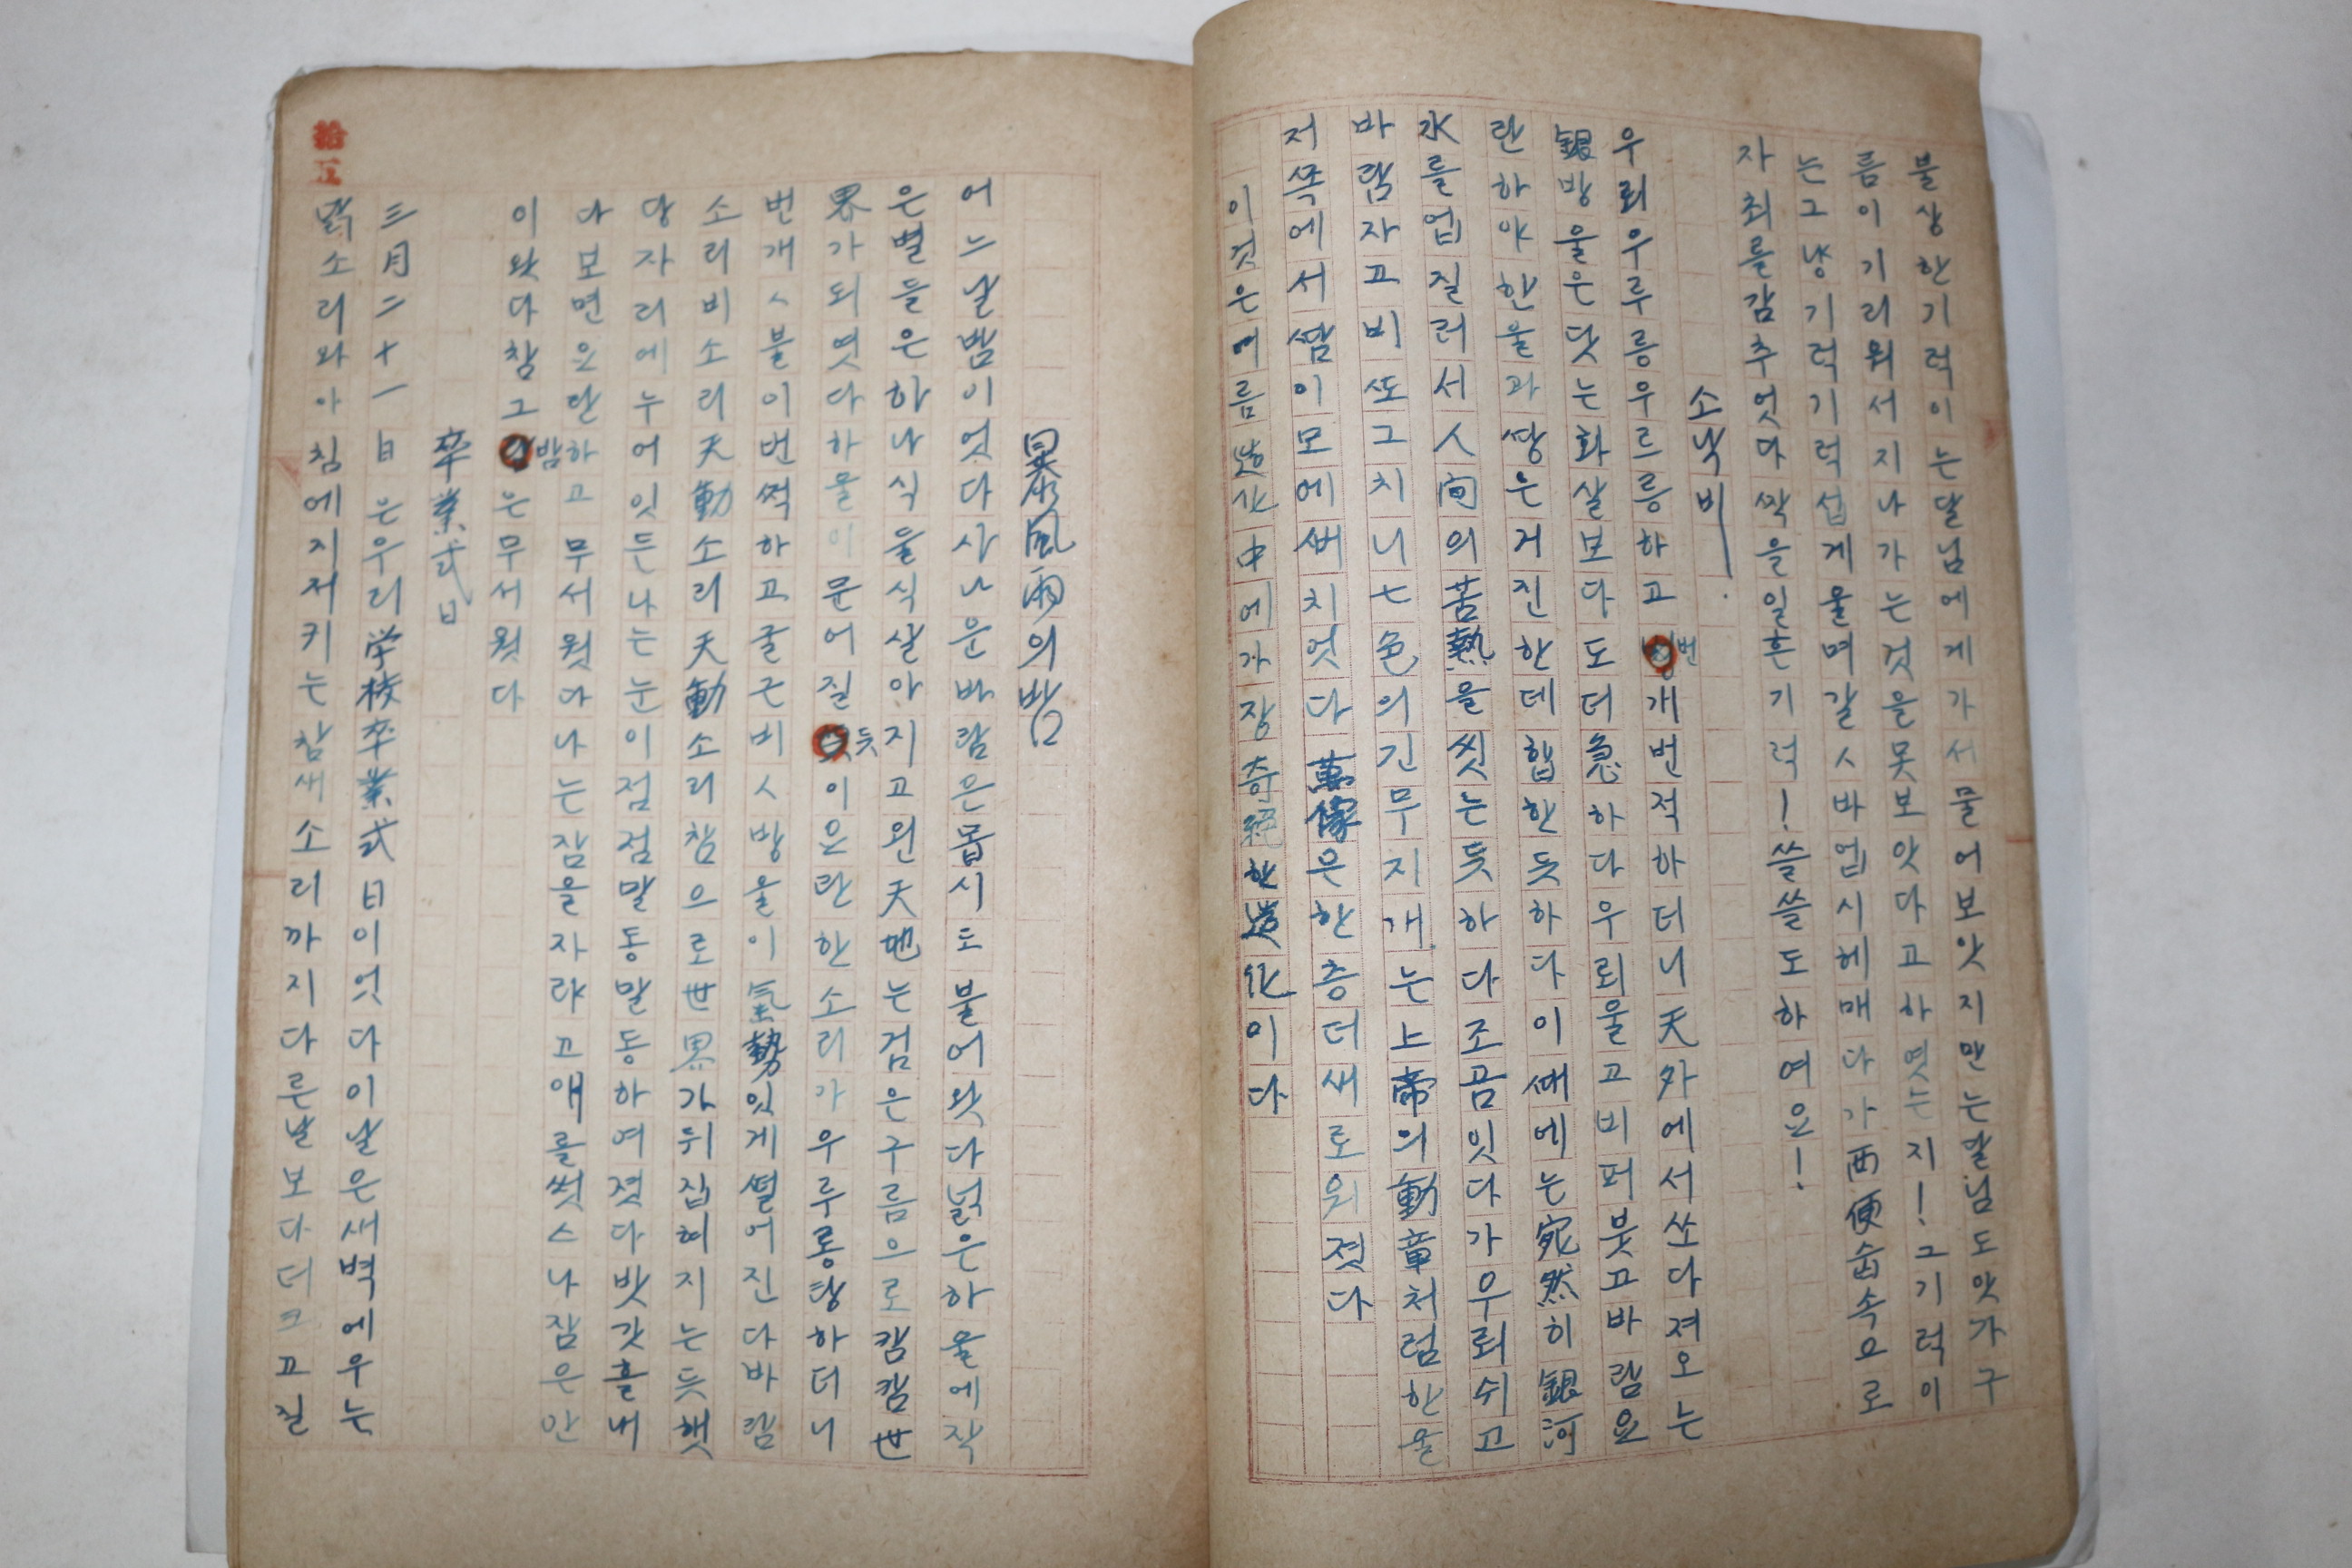 불상한기럭이는달님에게가서물어보앗지만는달님도앗가구
름이기리워서지나가는것을못보앗다고하엿는지!그기럭이
는그냥기럭기럭섭게울며갈ㅅ바업시헤매다가西便숩속으로
자최를감추엇다싹을일흔기럭!쓸쓸도하여요!
소낙비
우뢰우루릉우르릉하고번개번적하더니天外에서쏘다져오는
銀방울은닷는화살보다도더急하다우뢰울고비퍼붓고바람요
란하야한울과쌍은거진한데합한듯하다이쌔에는宛然히銀河
水를업질러서人间의苦熱을씻는듯하다조곰잇다가우뢰쉬고
바람자고비쏘그치니七色의긴무지개는上帝의勳章처럼한울
저쪽에서쌈이모에써치엇다萬像은한층더새로워졋다
이것은여름造化中에가장奇絕한造化이다
暴風雨의밤
어느날밤이엇다사나운바람은몹시도불어왓다넑은하울에작
은별들은하나식둘식살아지고왼天地는검은구름으로캄캄世
界가되엿다하물이문어질듯이요란한소리가우루룽탕하더니
번개ㅅ불이번쩍하고굴근비ㅅ방울이氣勢잇게썰어진다바람
소리비소리天動소리天動소리참으로世界가뒤집혀지는듯햇
당자리에누어잇든나는눈이점점말동말동하여졋다밧갓흘내
다보면요란하고무서웟다나는잠을자랴고애를썻스나잠은안
이왓다참그밤은무서웟다
卒業式日
三月二十一日은우리学校卒業式日이엇다이날은새벽에우는
닭소리와아침에지저키는참새소리까지다른날보다더크고질
拾五